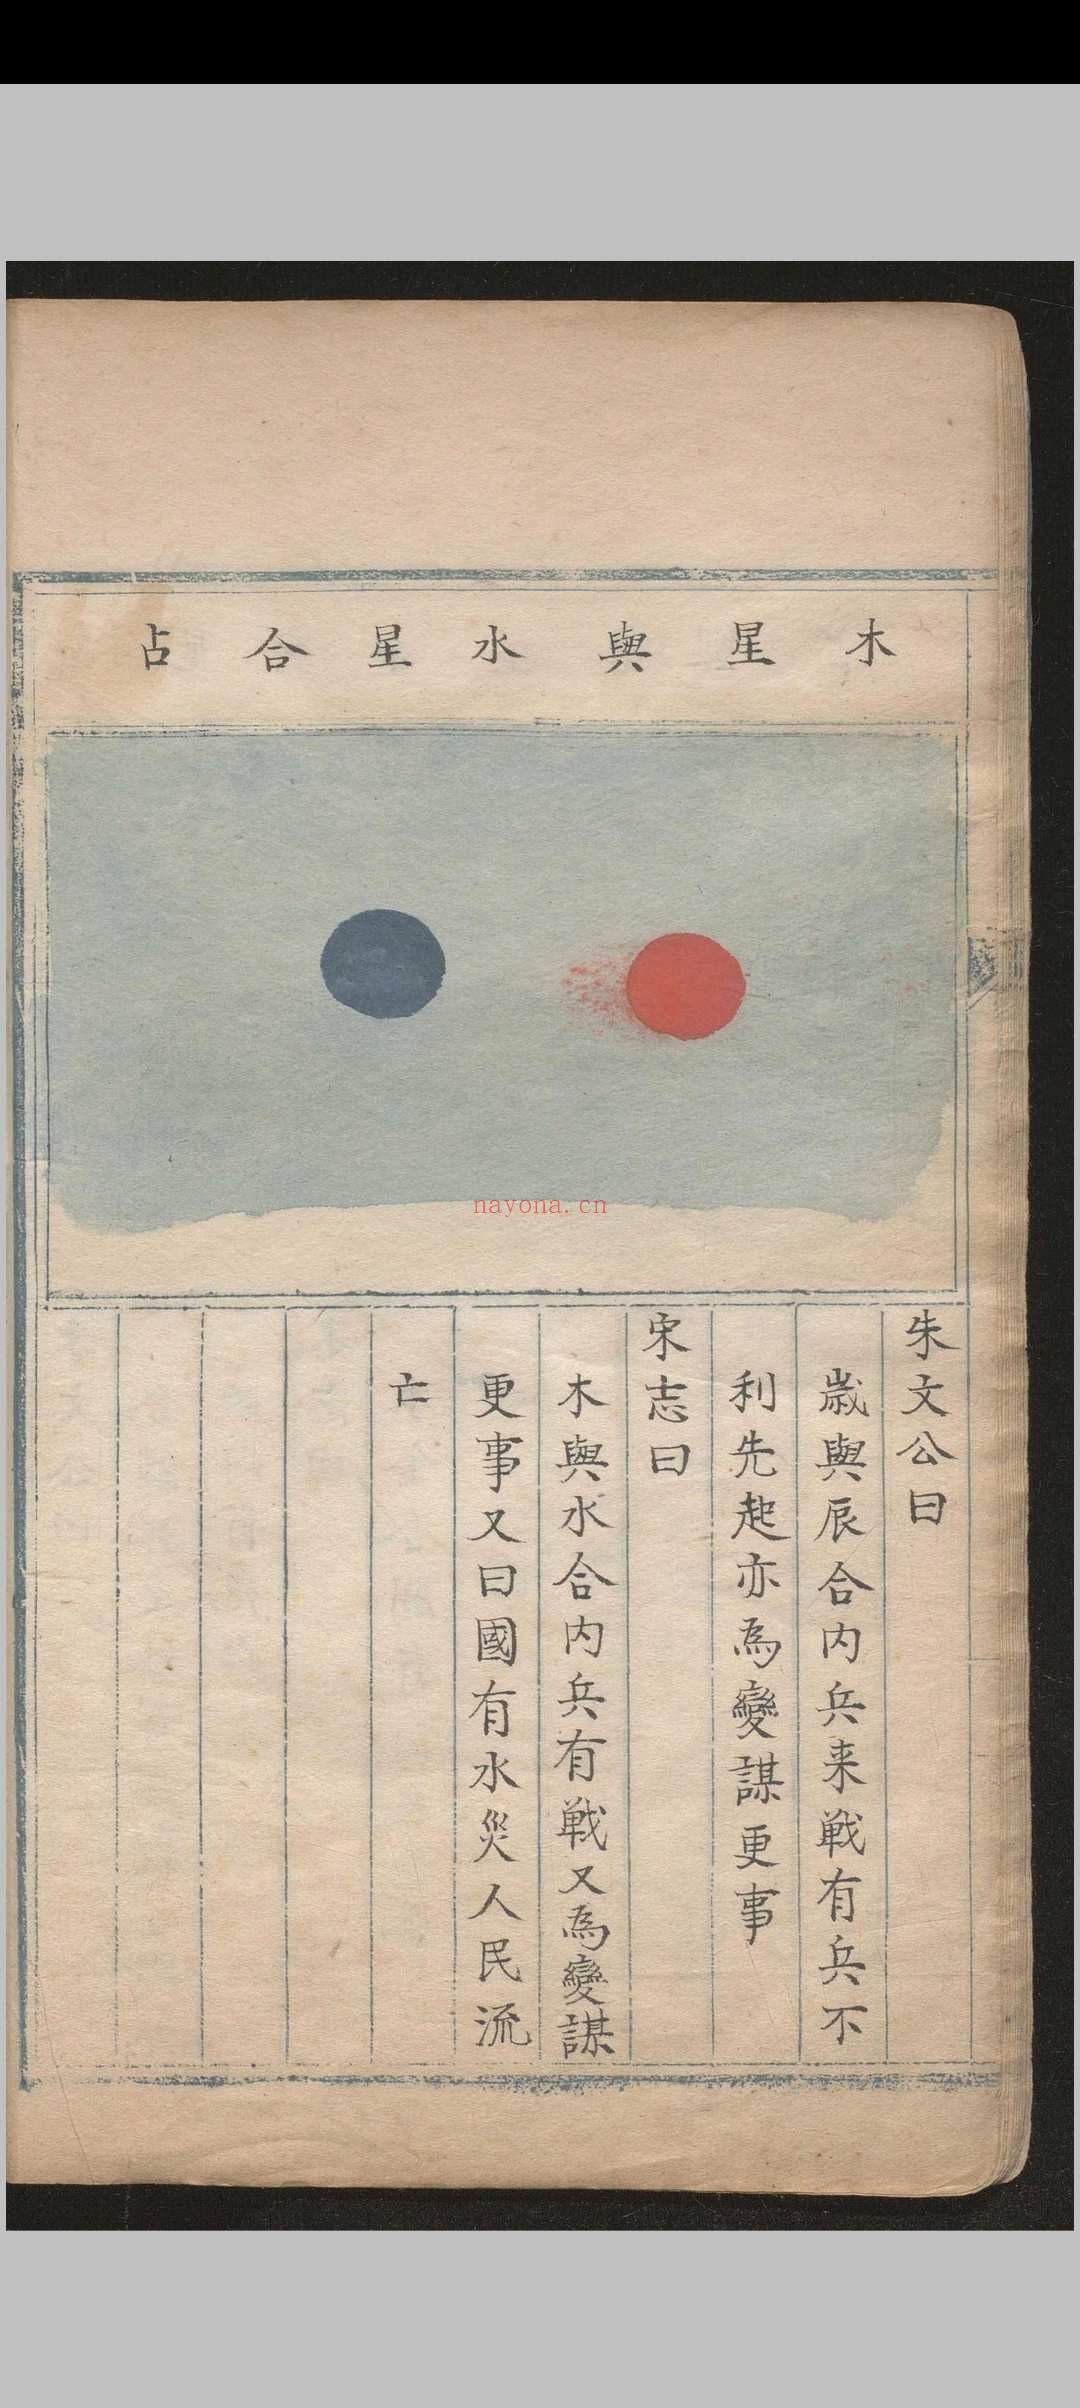 木星與水星合占
朱文公曰
歲與辰合內兵来戰有兵不
利先起亦為變謀更事
宋志曰
木與水合內兵有戰又為變謀
更事又曰國有水災人民流
亡
nayona.cn